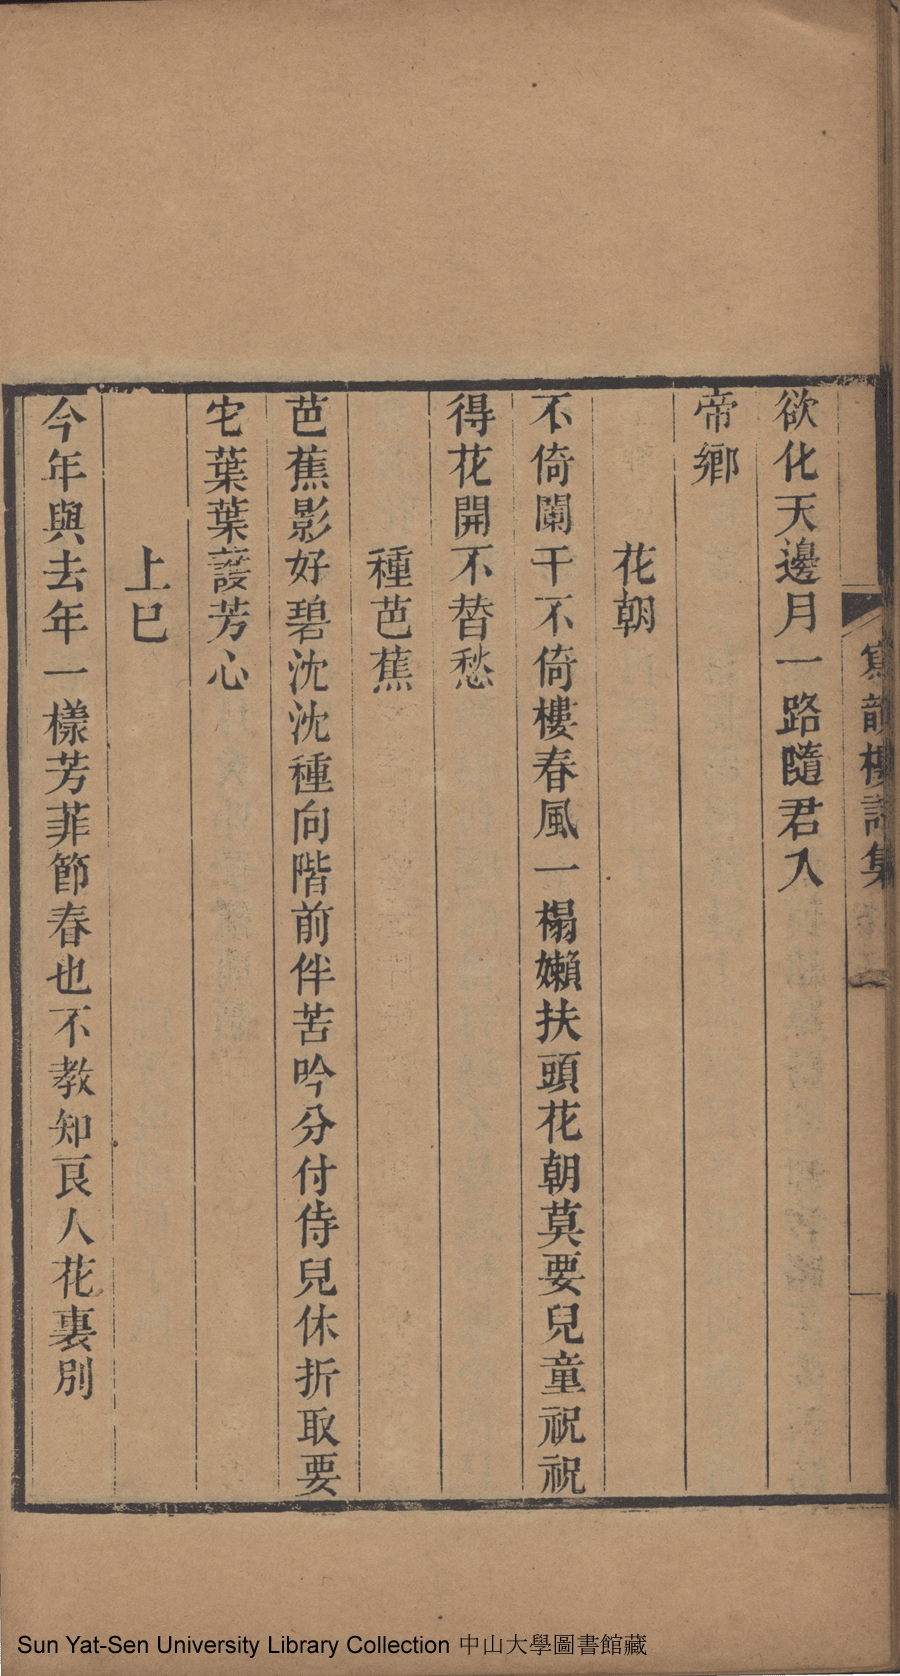 寫韻樓詩集
欲化天邊月一路隨君入
帝鄉
花朝
不倚闌干不倚樓春風一榻嬾扶頭花朝莫要兒童祝祝
得花開不替愁
種芭蕉
芭蕉影好碧沈沈種向階前伴苦吟分付侍兒休折取要
它葉葉護芳心
上巳
今年與去年一樣芳菲節春也不教知良人花裏別
Sun Yat-Sen University Library Collection 中山大學圖書館藏